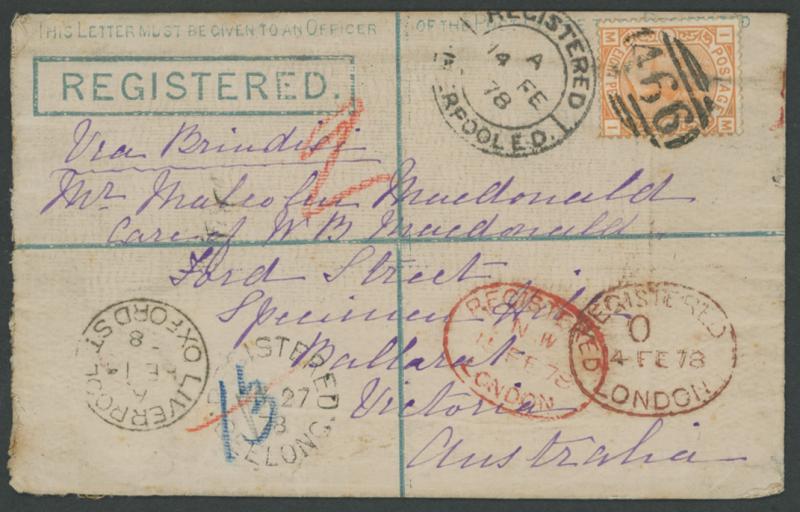 THIS LETTER MUST BE GIVEN TO AN OFFICER OF THE
REGISTERED.
REGISTERED
A
14 FE
78
ERPOOL E.D.
I POSTAGE M
M EIGHT I
466
2
Via Brindisi
Mr Malcolm Macdonald
Care of W B Macdonald
Ford Street
Specimen Hill
Ballarat
Victoria
Australia
LIVERPOOL
OXFORD ST.
A
FE 14
8
REGISTERED
27
GEELONG
15
REGISTERED
N W
FE 78
LONDON
REGISTERED
O
14 FE 78
LONDON